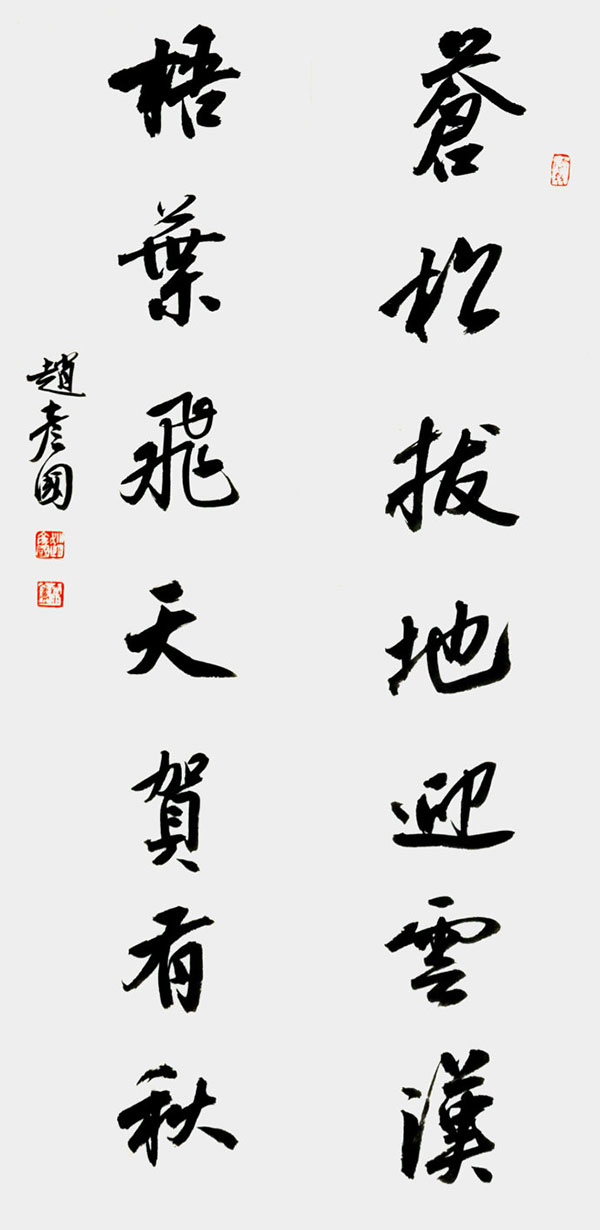 蒼松拔地迎雲漢
梧葉飛天賀有秋
趙彥國